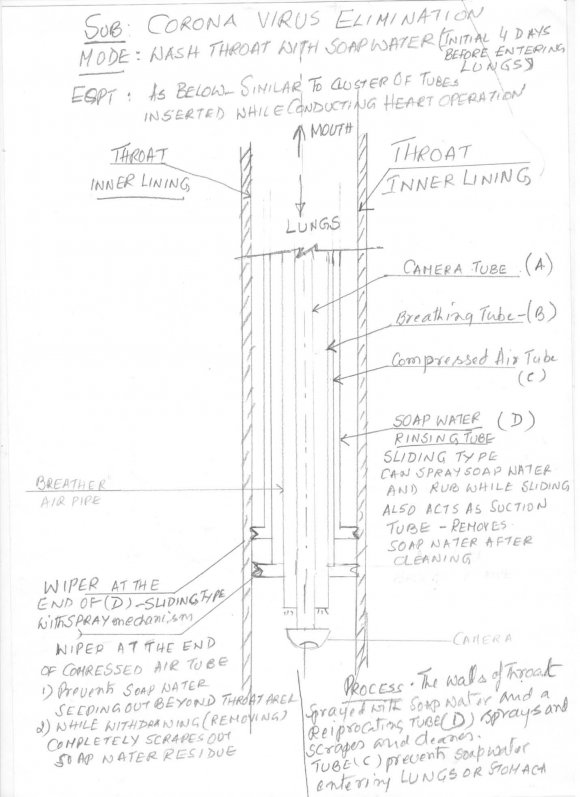 SUB: CORONA VIRUS ELIMINATION
MODE: WASH THROAT WITH SOAP WATER (INITIAL 4 DAYS
BEFORE ENTERING
LUNGS)
EQPT: AS BELOW - SIMILAR TO CLUSTER OF TUBES
INSERTED WHILE CONDUCTING HEART OPERATION
MOUTH
THROAT
INNER LINING
THROAT
INNER LINING
LUNGS
CAMERA TUBE (A)
Breathing Tube-(B)
Compressed Air Tube
(C)
SOAP WATER (D)
RINSING TUBE
SLIDING TYPE
CAN SPRAY SOAP WATER
AND RUB WHILE SLIDING
ALSO ACTS AS SUCTION
TUBE - REMOVES
SOAP WATER AFTER
CLEANING
BREATHER
AIR PIPE
WIPER AT THE
END OF (D) - SLIDING TYPE
WITH SPRAY mechanism
WIPER AT THE END
OF COMRESSED AIR TUBE
1) Prevents SOAP WATER
SEEDING OUT BEYOND THROAT AREA
2) WHILE WITHDRAWING (REMOVING)
COMPLETELY SCRAPES OUT
SOAP WATER RESIDUE
CAMERA
PROCESS - The walls of Throat
Sprayed with Soap water and a
Reiprocating TUBE (D) Sprays and
Scrapes and cleanes.
TUBE (C) prevents soapwater
entering LUNGS OR STOMACA